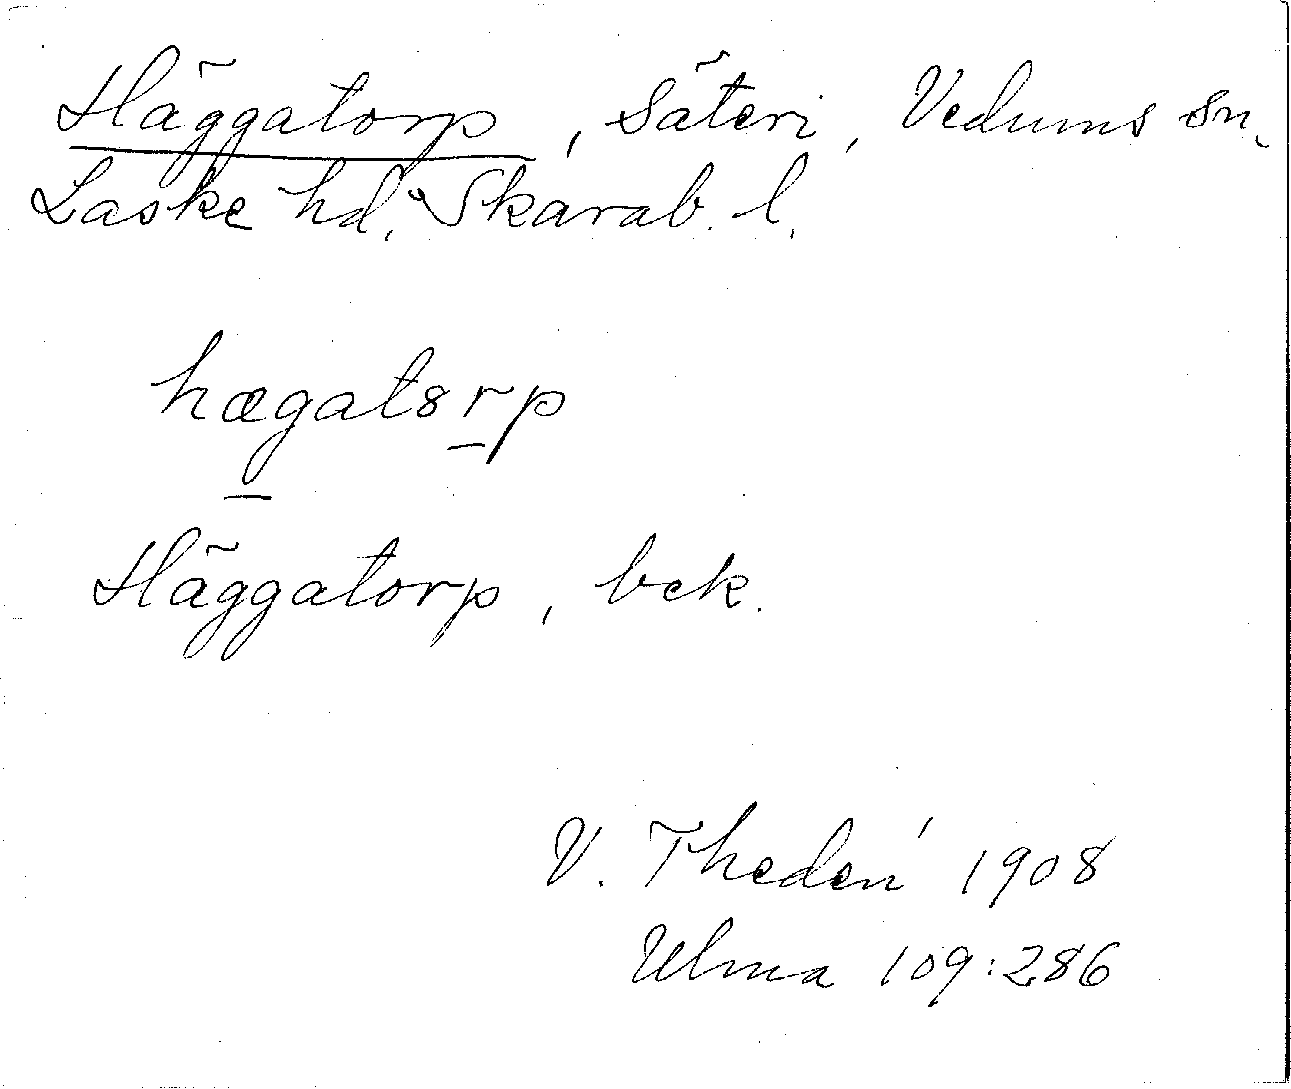 Häggatorp, Säteri, Vedums sn.
Laske hd, Skarab. l.
hægats̲r̲p
Häggatorp, bek.
V. Thedén 1908
Ulma 109:286